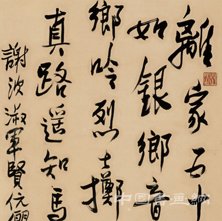 離家五十
如銀鄉音
鄉吟烈士擲
真路遥知馬
謝沈淑軍賢伉儷